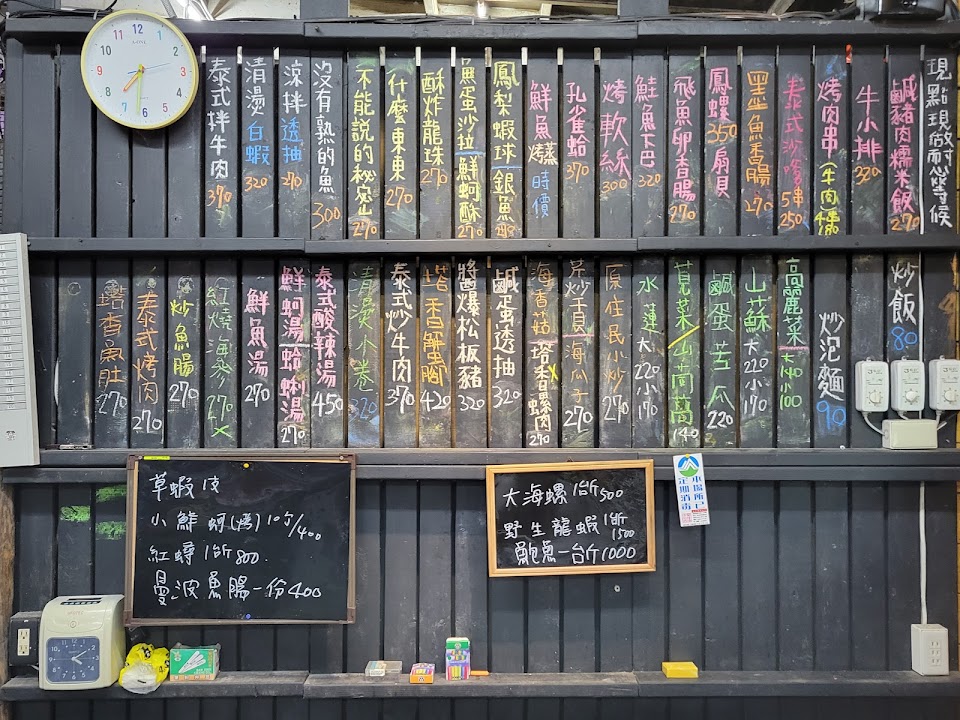 現點現做尚而您等候
鹹豬肉糯米飯 270
牛小排 320
烤肉串(牛肉4串180
泰式沙嗲5串250
墨魚香腸 270
鳳螺350扇貝
飛魚卵香腸 270
鮭魚下巴 320
烤軟絲 300
孔雀蛤 370
鮮魚烤蒸 時價
鳳梨蝦球 銀魚酥
魚蛋沙拉 鮮蚵酥 270
酥炸龍珠 270
什麼東東 270
不能說的秘密 270
沒有熟的魚 300
涼拌透抽 270
清燙白蝦 320
泰式拌牛肉 370
炒飯 80
炒泡麵 90
高麗菜 大140小100
山蘇 大220小170
鹹蛋苦瓜 220
莧菜/山茼蒿 140
水蓮 大220小170
原住民小炒 270
芹炒干貝/海瓜子 270
海香菇 塔香螺肉 270
鹹蛋透抽 320
醬爆松板豬 320
塔香蟹串關 420
泰式炒牛肉 370
清燙小卷 320
泰式酸辣湯 450
鮮蚵湯 蛤蜊湯 270
鮮魚湯 270
紅燒海參 270
炒魚腸 270
泰式烤肉 270
塔香魚肚 270
草蝦 1支
小鮮蚵(烤) 10個/400
紅蟳 1台斤 800.
曼波魚腸一份400
大海螺 1台斤500
野生龍蝦 1台斤1500
鮑魚一台斤1000
本場所已
定期消毒